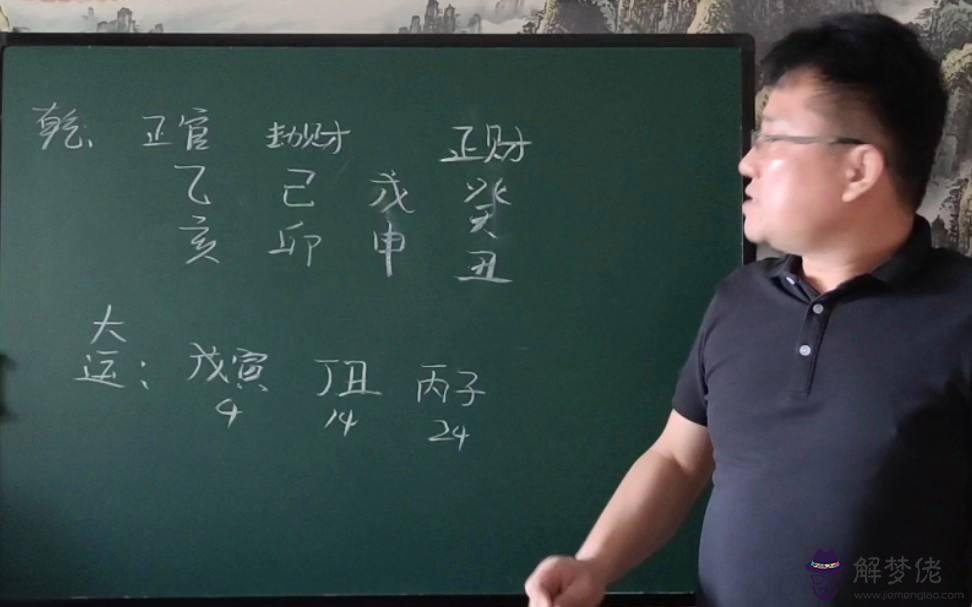 乾: 正官 劫财 正财
乙 己 戊 癸
亥 卯 申 丑
大
运: 戊寅 丁丑 丙子
4 14 24
解梦佬
www.jiemenglao.com